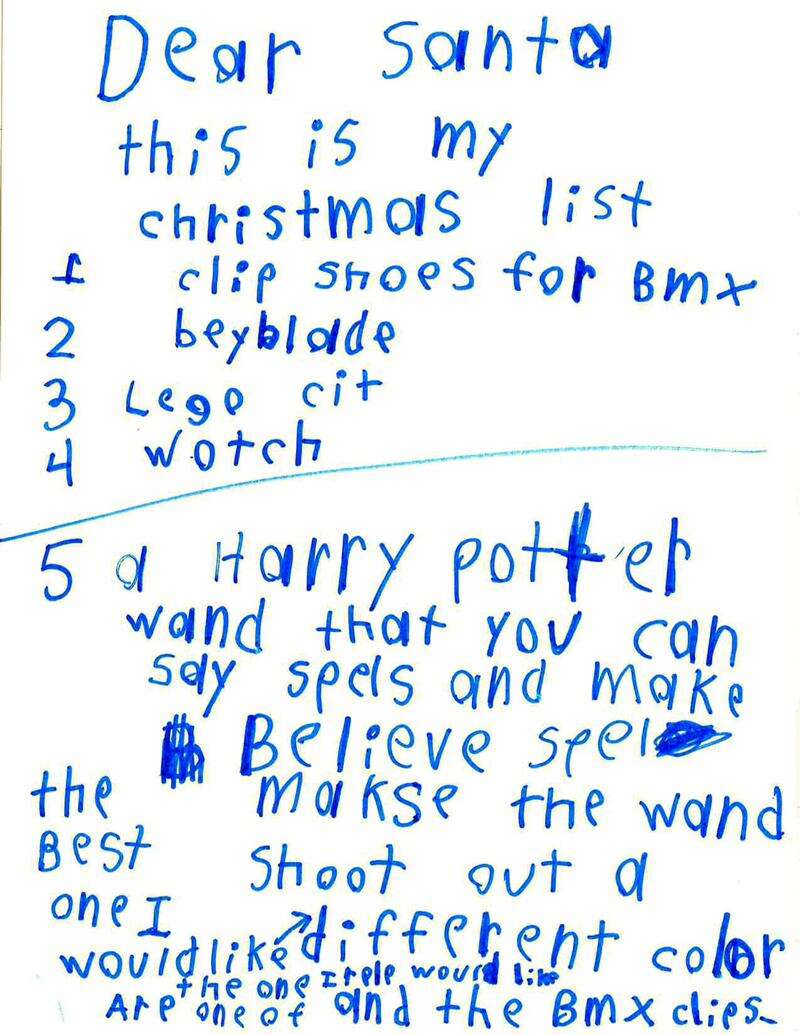 Dear Santa
this is my
christmas list
1 clip shoes for Bmx
2 beyblade
3 Lego cit
4 wotch
5 a Harry potter
wand that you can
say spels and make
Believe spel
makse the wand
shoot out a
different color
the
Best
one I
would like
the one I rele would like
Are one of and the Bmx clips